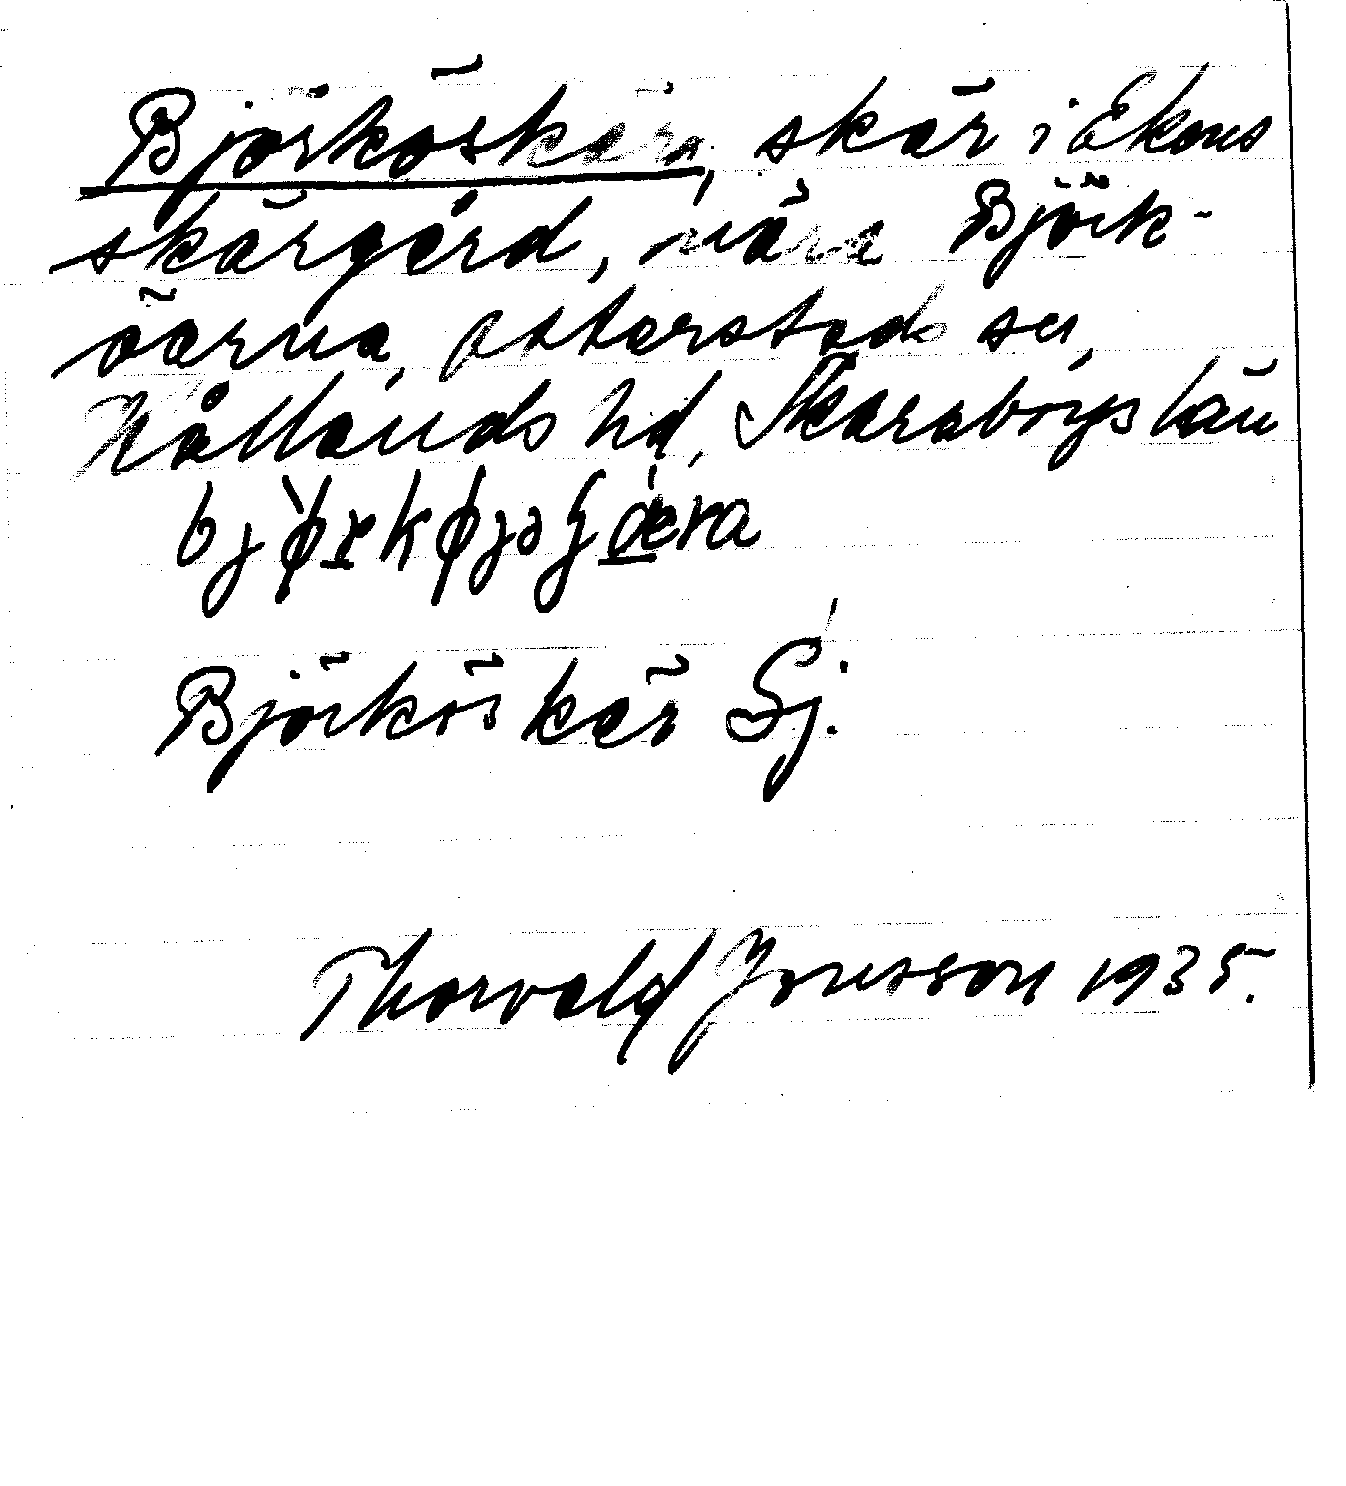 Björköskära, skär i Ekens
skärgård, nära Björk-
öarna, Otterstads sn,
Kållands hd, Skaraborgs län
Björköskär Sj.
Thorvald Jonsson 1935.